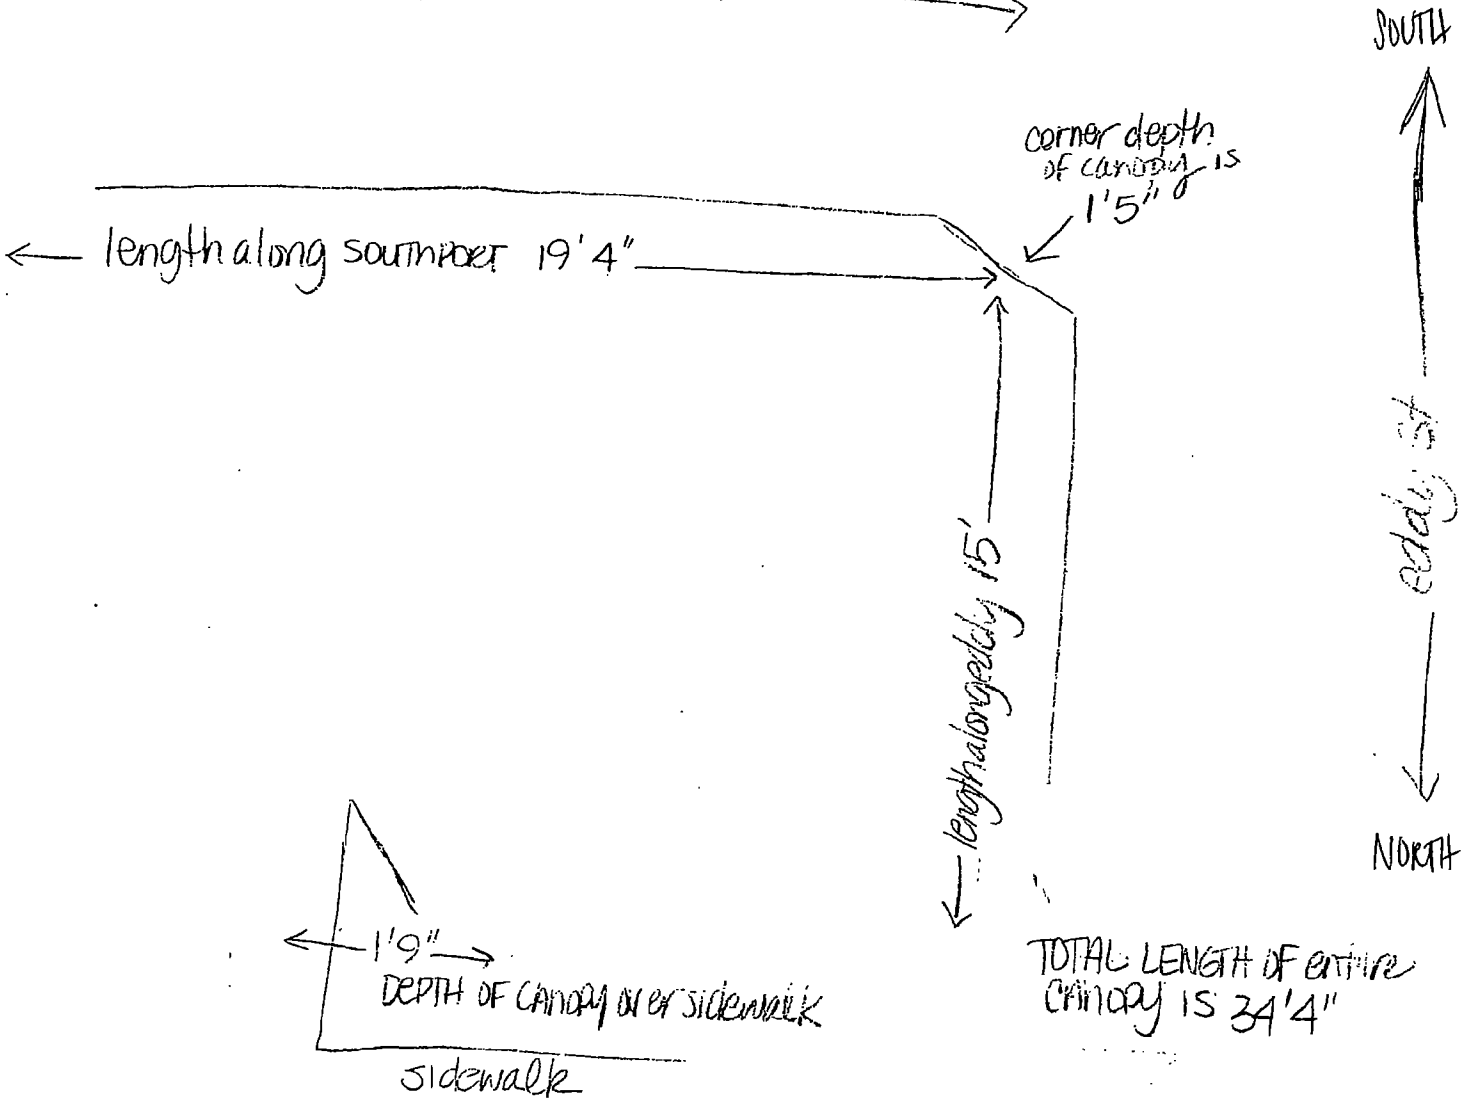 SOUTH
corner depth
of canopy is
1'5"
length along SOUTHPORT 19'4"
eddy St
length along eddy 15'
NORTH
1'9"
DEPTH OF CANOPY over sidewalk
sidewalk
TOTAL LENGTH OF entire
CANOPY IS 34'4"